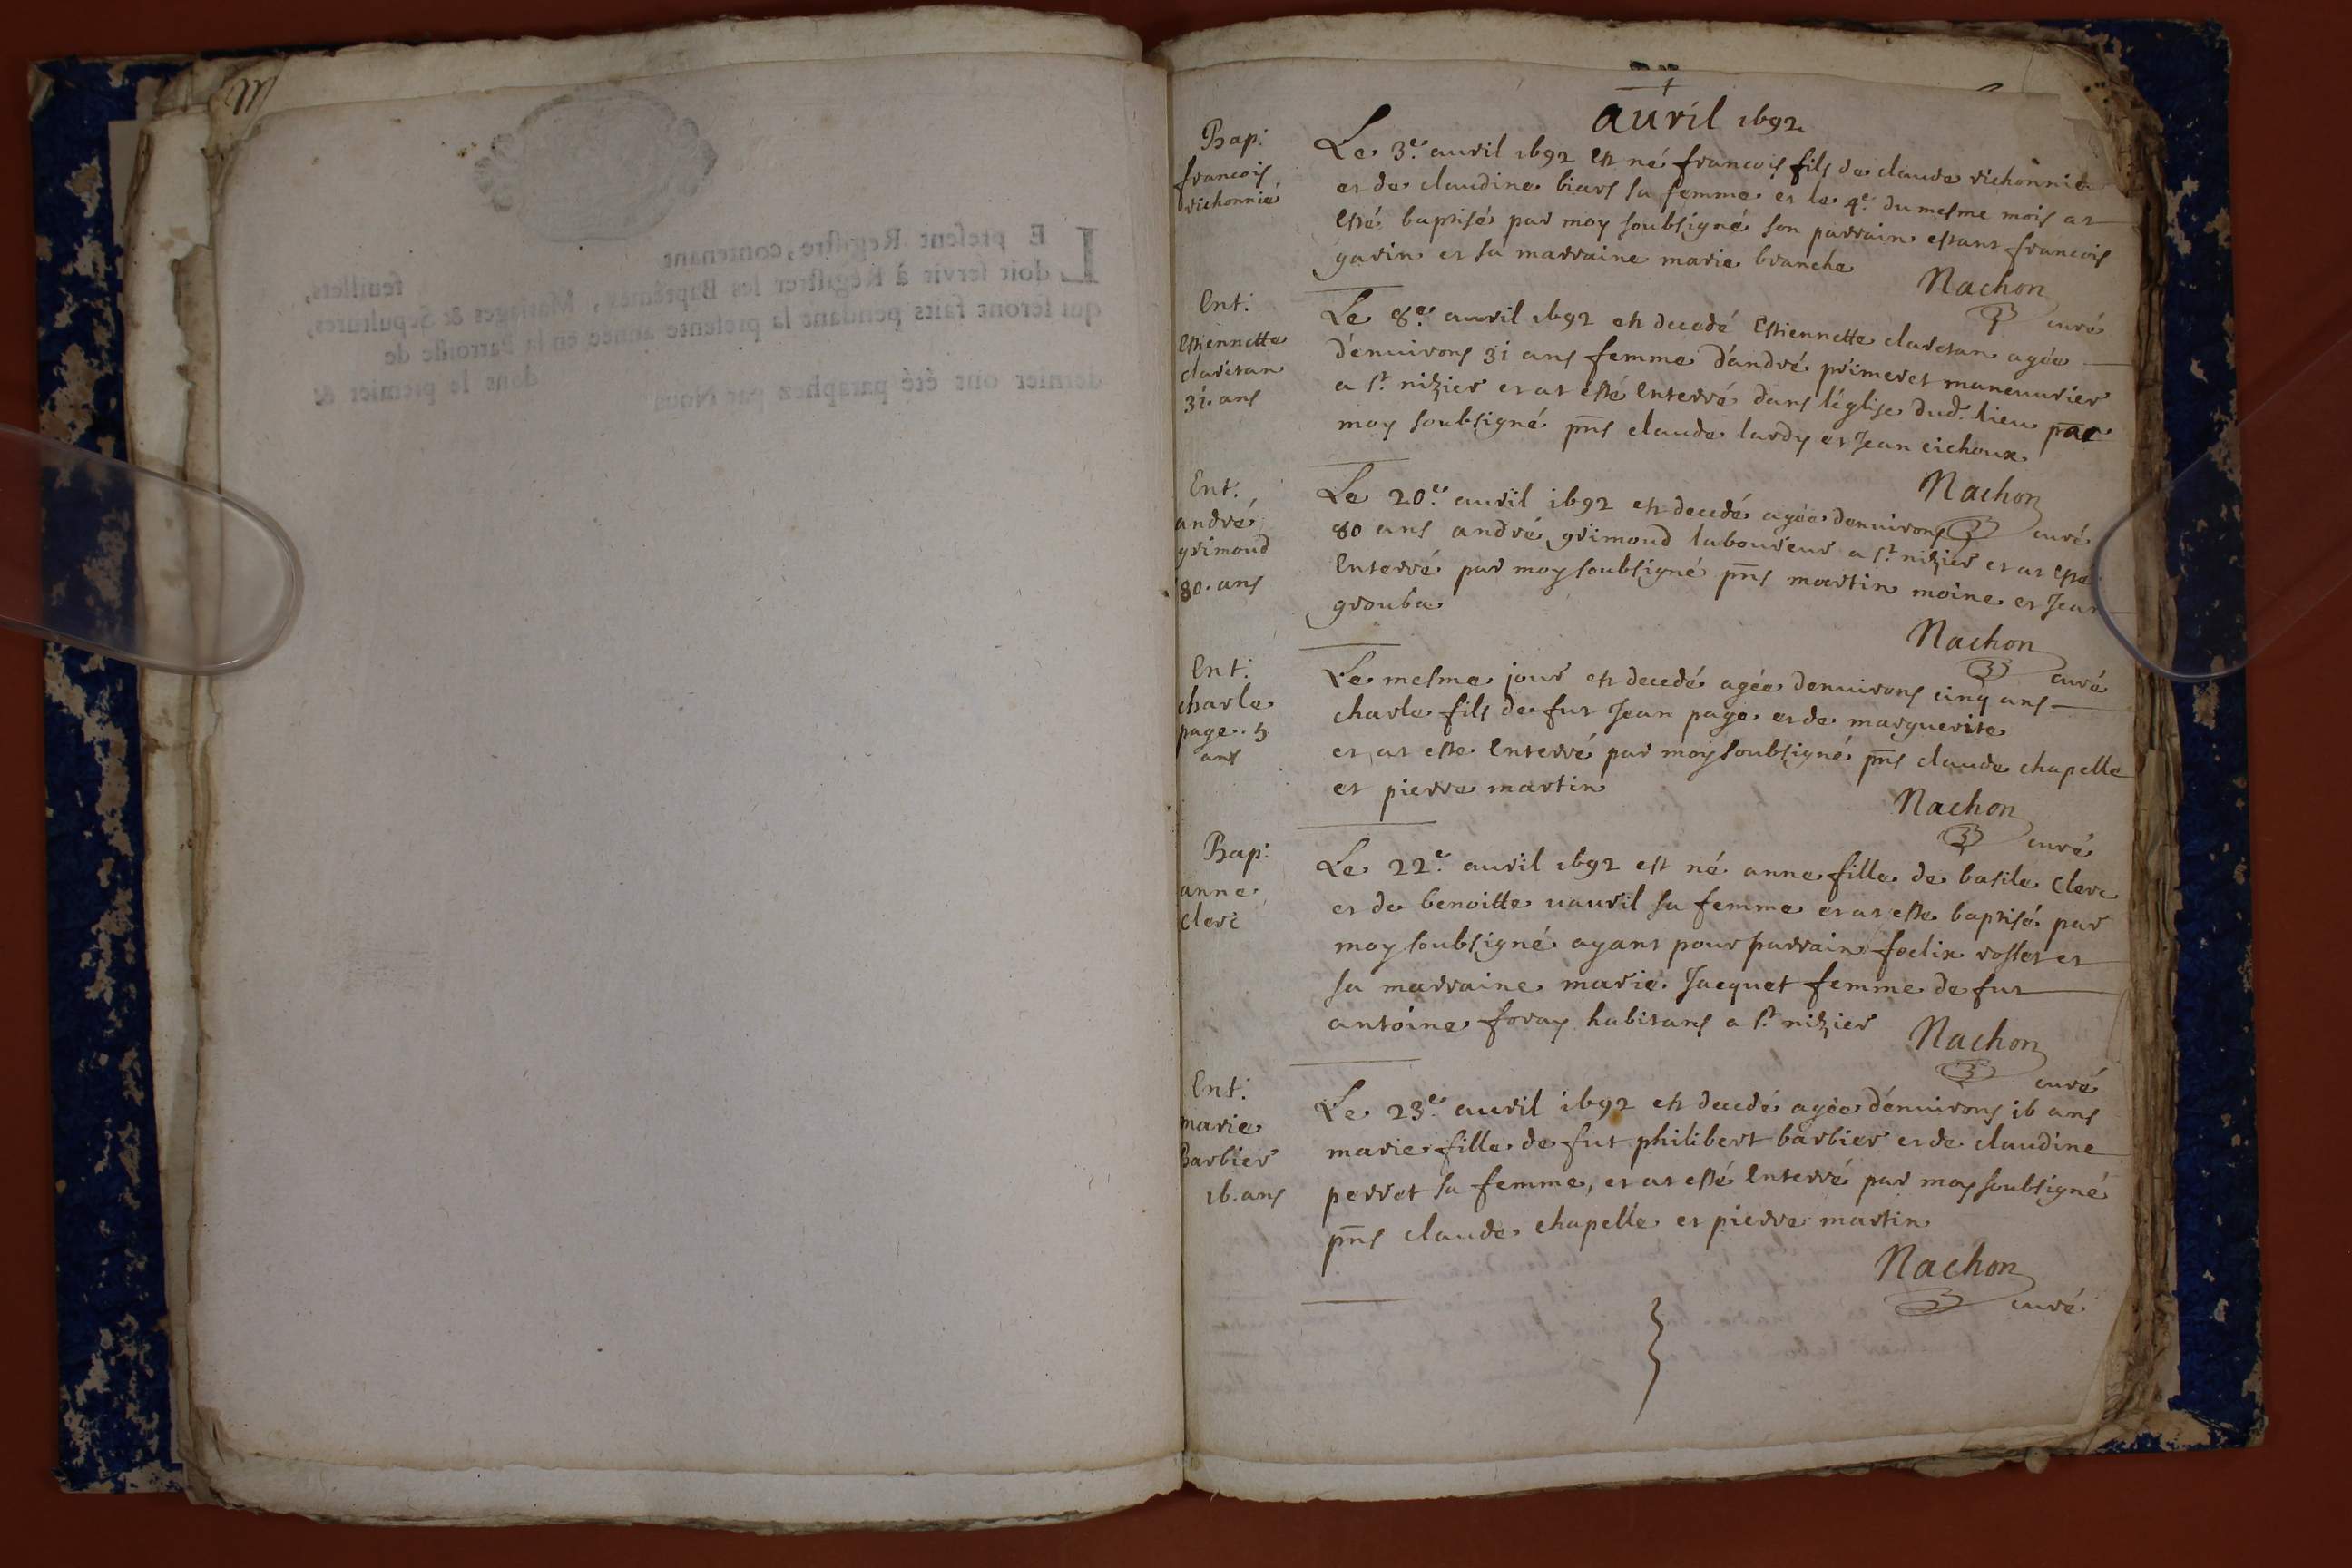 avril 1692
Bap:
francois
richonnié
Le 3e avril 1692 est né francois fils de claude richonnié
et de claudine biars sa femme et le 4e du mesme mois at
esté baptisé par moy soubsigné son parrain estant francois
gavin et sa marraine marie branche
Nachon
curé
Ent:
Estiennette
claretan
31. ans
Le 8e avril 1692 est decedé Estiennette claretan agée
d'environs 31 ans femme d'andré primeret maneuvrier
a st nizier et at esté Enterré dans l'église dud. lieu par
moy soubsigné pns claude lardy et Jean cichoux
Nachon
curé
Ent:
andré
grimoud
80. ans
Le 20e avril 1692 est decedé agée denvirons
80 ans andré grimoud laboureur a st nizier et at esté
Enterré par moy soubsigné pns martin moine et Jean
grouba
Nachon
curé
Ent:
charle
page. 5
ans
Le mesme jour est decedé agée denvirons cinq ans
charle fils de fut Jean page et de marguerite
et at este Enterré par moy soubsigné pns claude chapelle
et pierre martin
Nachon
curé
Bap:
anne
clerc
Le 22e avril 1692 est né anne fille de basile Clerc
et de benoitte vauril sa femme et at este baptisé par
moy soubsigné ayant pour parrain foelix rosset et
sa marraine marie Jacquet femme de fut
antoine foray habitans a st nizier
Nachon
curé
Ent:
marie
Barbier
16. ans
Le 23e avril 1692 est decedé agée d'environs 16 ans
marie fille de fut philibert barbier et de claudine
perret sa femme, et at esté Enterré par moy soubsigné
pns claude chapelle et pierre martin
Nachon
curé